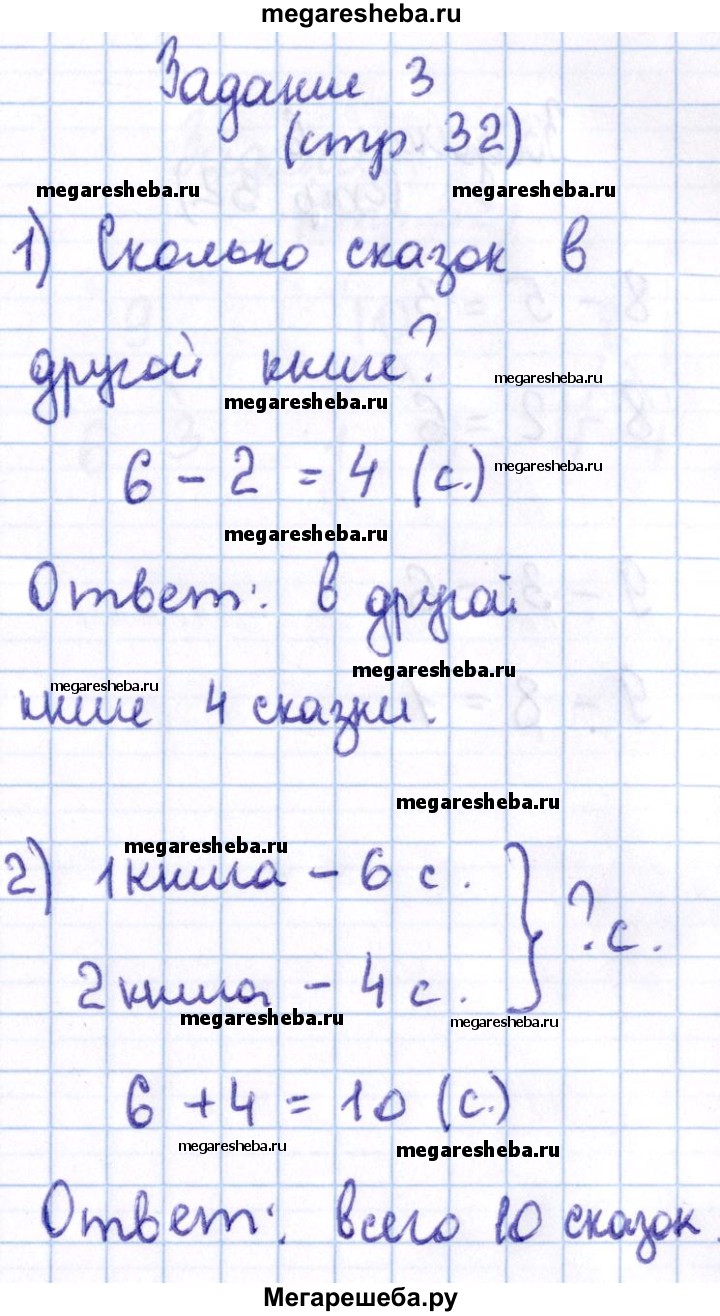 megaresheba.ru
Задание 3
(стр. 32)
megaresheba.ru megaresheba.ru
1) Сколько сказок в
другой книге?
megaresheba.ru
megaresheba.ru
6 - 2 = 4 (с.)
megaresheba.ru
megaresheba.ru
Ответ: в другой
megaresheba.ru
megaresheba.ru
книге 4 сказки.
megaresheba.ru
megaresheba.ru
2) 1 книга - 6 с. } ? с.
2 книга - 4 с.
megaresheba.ru megaresheba.ru
6 + 4 = 10 (с.)
megaresheba.ru megaresheba.ru
Ответ: всего 10 сказок.
Мегарешеба.ру